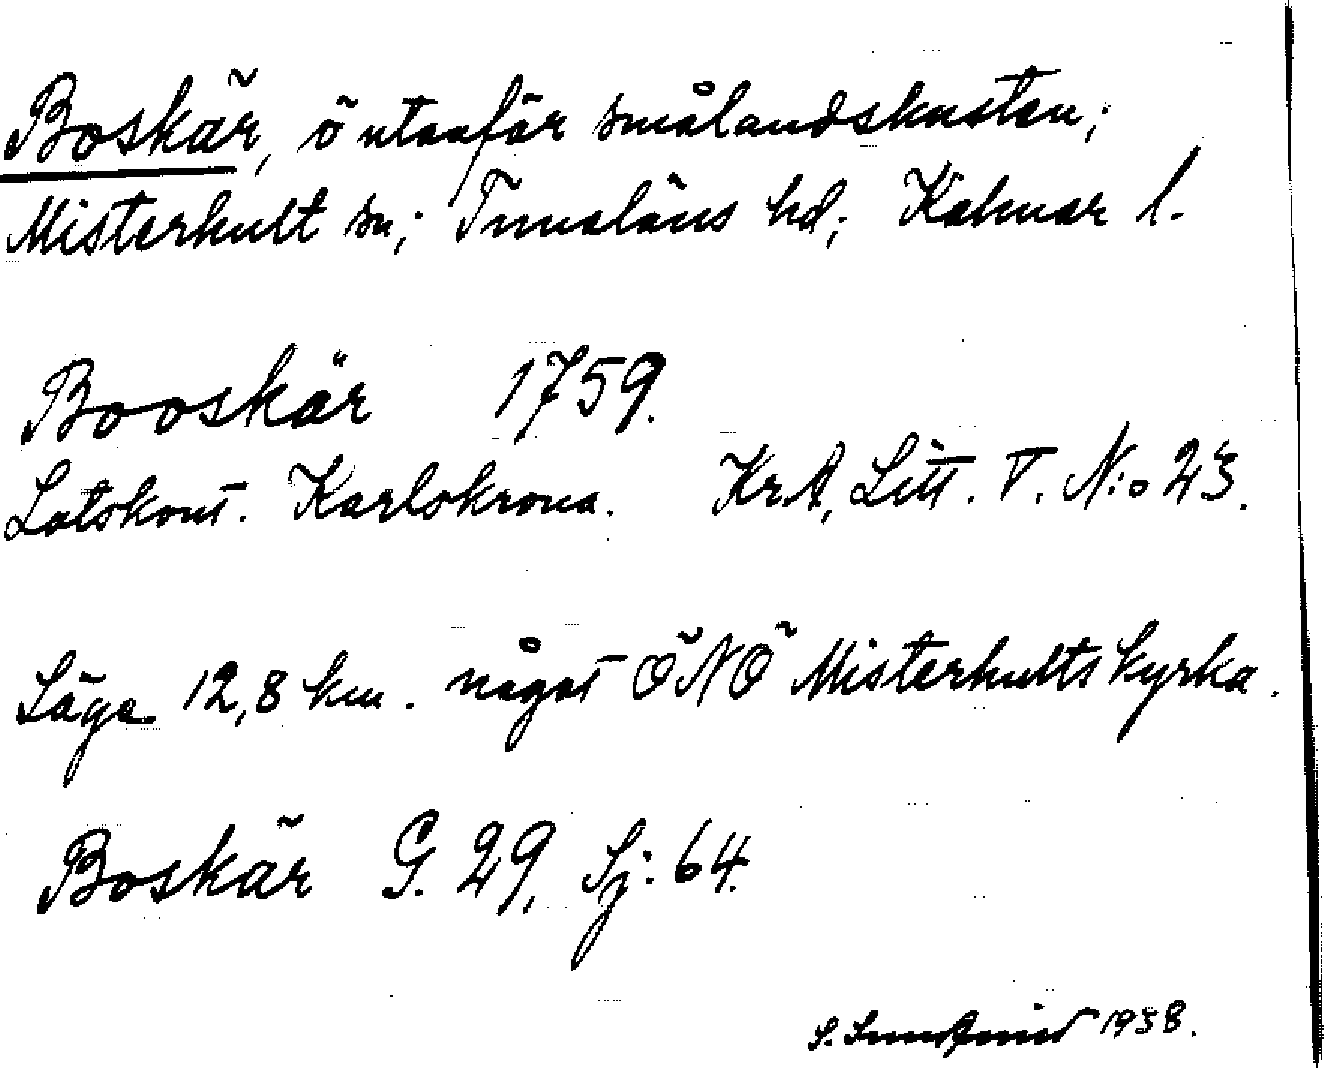 Boskär, ö utanför smålandskusten;
Misterhult sn; Tunaläns hd; Kalmar l.
Booskär 1759.
Lotskont. Karlskrona. KrA, Litt. V. N:o 23.
Läge 12,8 km. något ÖNÖ Misterhults kyrka.
Boskär G. 29, Sj: 64.
S. 1938.